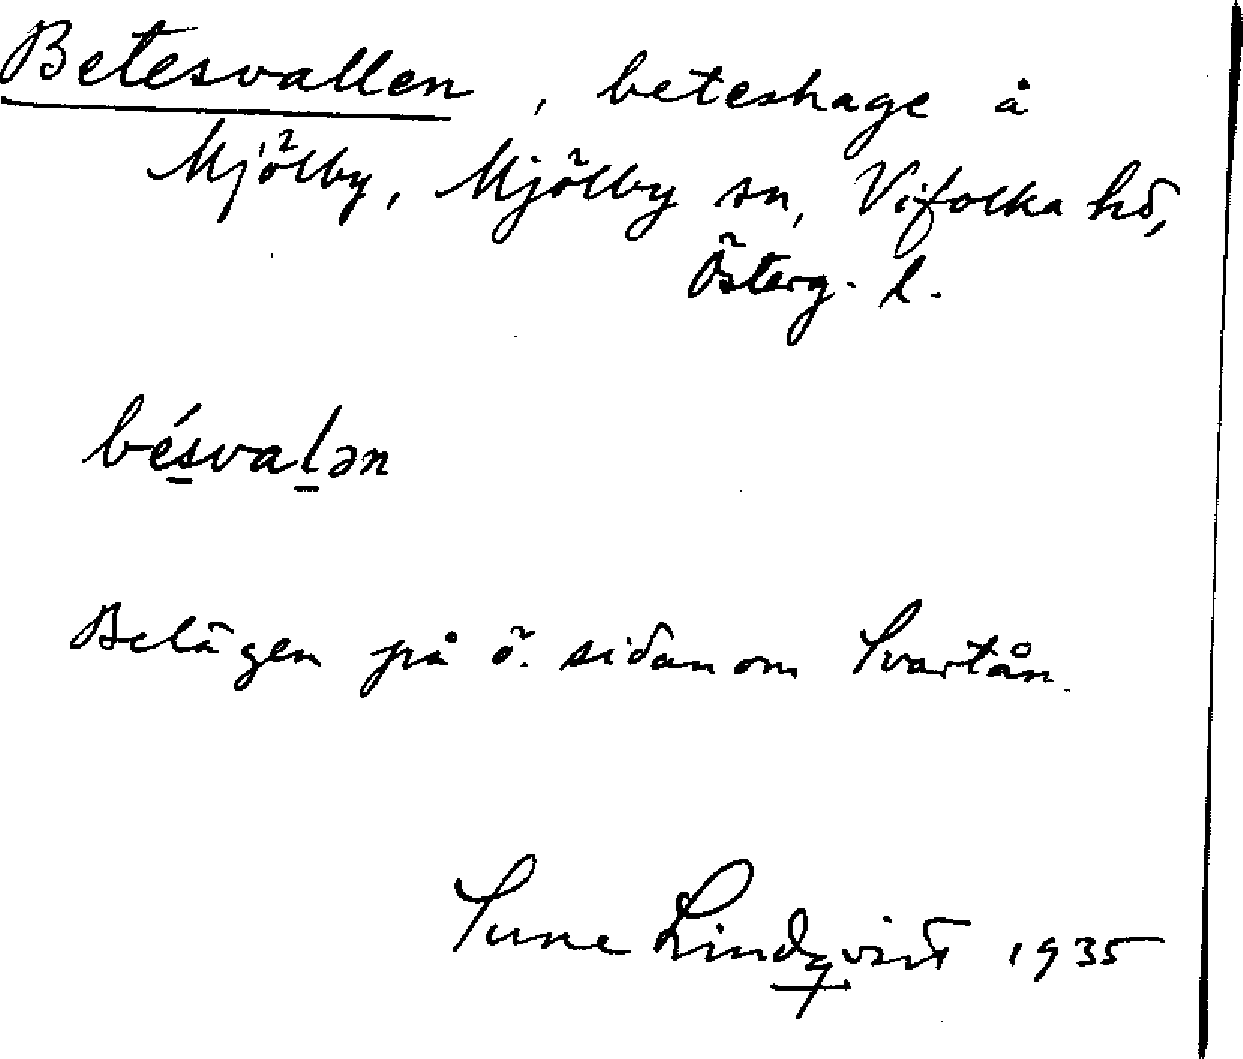 Betesvallen, beteshage å
Mjölby, Mjölby sn, Vifolka hd,
Österg. l.
bésvalən
Belägen på ö. sidan om Svartån.
Sune Lindqvist 1935